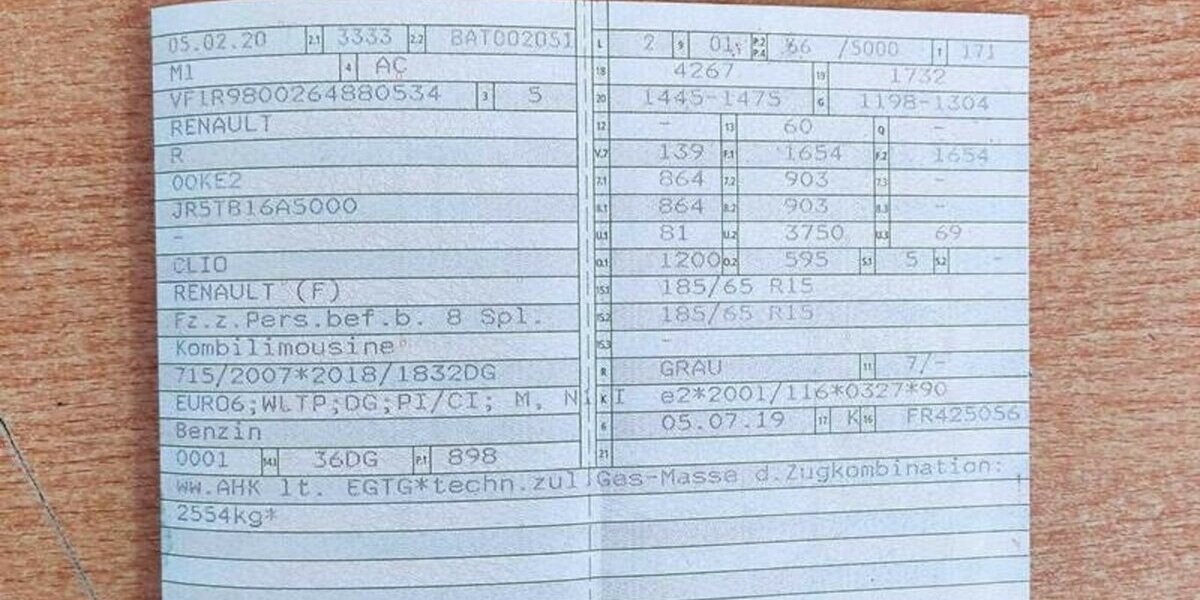 05.02.20 2.1 3333 2.2 BAT002051
M1 4 AC
VF1R9800264880534 3 5
RENAULT
R
00KE2
JR5TB16A5000
-
CLIO
RENAULT (F)
Fz.z.Pers.bef.b. 8 Spl.
Kombilimousine
715/2007*2018/1832DG
EURO6;WLTP;DG;PI/CI; M, N1 I
Benzin
0001 14.1 36DG P.1 898
L 2 9 01 P.2 P.4 66 /5000 T 171
18 4267 19 1732
20 1445-1475 G 1198-1304
12 - 13 60 Q -
V.7 139 F.1 1654 F.2 1654
7.1 864 7.2 903 7.3 -
8.1 864 8.2 903 8.3 -
U.1 81 U.2 3750 U.3 69
O.1 1200 O.2 595 S.1 5 S.2 -
15.1 185/65 R15
15.2 185/65 R15
15.3 -
R GRAU 11 7/-
K e2*2001/116*0327*90
6 05.07.19 17 K 16 FR425056
21
WW.AHK lt. EGTG*techn.zul.Ges-Masse d.Zugkombination:
2554kg*